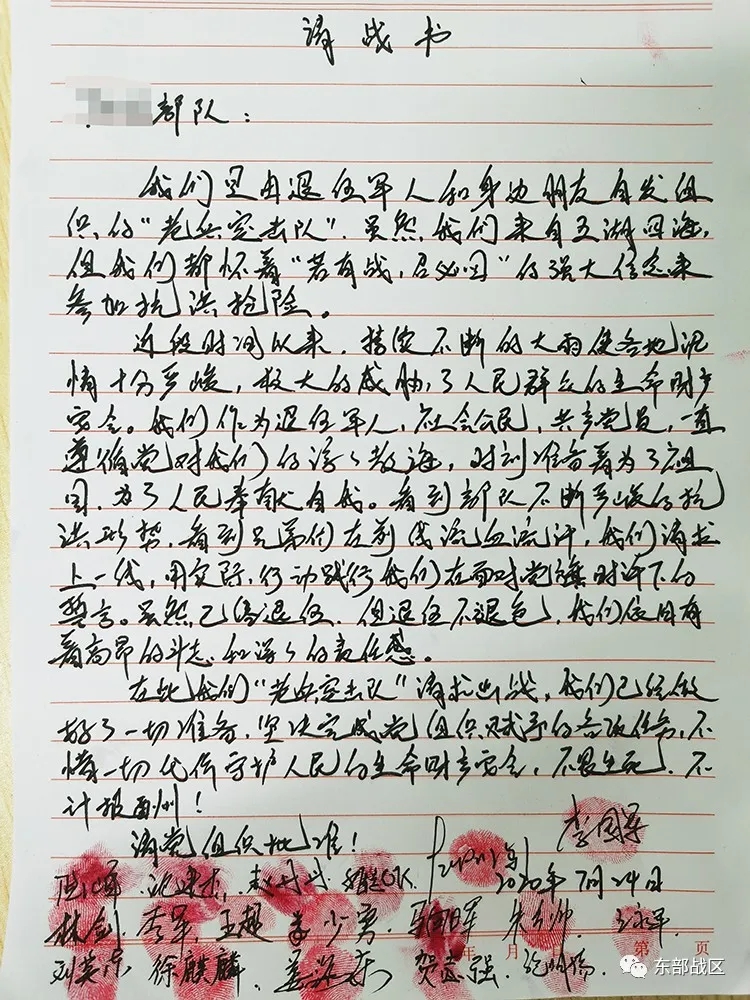 请战书
部队：
我们是由退伍军人和身边朋友自发组
织的“老兵突击队”，虽然我们来自五湖四海，
但我们都怀着“若有战，召必回”的强大信念来
参加抗洪抢险。
近段时间以来，持续不断的大雨使各地汛
情十分严峻，极大的威胁了人民群众的生命财产
安全。我们作为退伍军人，社会公民，共产党员，一直
遵循党对我们的谆谆教诲，时刻准备着为了祖
国，为了人民奉献自我。看到部队不断严峻的抗
洪形势，看到兄弟们在前线流血流汗，我们请求
上一线，用实际行动践行我们在面对党旗时许下的
誓言。虽然已经退伍，但退伍不退色，我们依旧有
着高昂的斗志和深深的责任感。
在此我们“老兵突击队”请求出战，我们已经做
好了一切准备，坚决完成党组织赋予的各项任务，不
惜一切代价守护人民的生命财产安全，不畏生死，不
计报酬！
请党组织批准！
李国军
2020年7月24日
林剑 李军 王超 姜少勇
徐麒麟 贺志强
年 月 第 页
东部战区